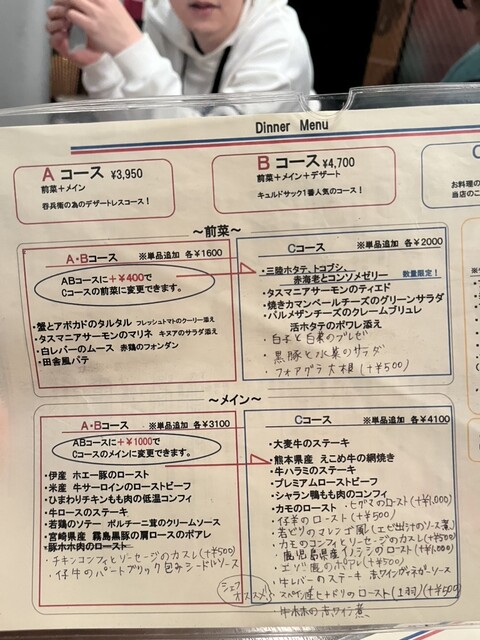 Dinner Menu
A コース ¥3,950
前菜＋メイン
呑兵衛の為のデザートレスコース！
B コース ¥4,700
前菜＋メイン＋デザート
キュルドサック1番人気のコース！
C
お料理の
当店のこ
～前菜～
A・Bコース ※単品追加 各¥1600
ABコースに＋¥400で
Cコースの前菜に変更できます。
・蟹とアボカドのタルタル フレッシュトマトのクーリー添え
・タスマニアサーモンのマリネ キヌアのサラダ添え
・白レバーのムース 赤鶏のフォンダン
・田舎風パテ
Cコース ※単品追加 各¥2000
・三陸ホタテ、トコブシ、
赤海老とコンソメゼリー 数量限定！
・タスマニアサーモンのティエド
・焼きカマンベールチーズのグリーンサラダ
・パルメザンチーズのクレームブリュレ
活ホタテのポワレ添え
・白子と白菜のブレゼ
・黒豚と水菜のサラダ
・フォアグラ大根(+¥500)
～メイン～
A・Bコース ※単品追加 各¥3100
ABコースに＋¥1000で
Cコースのメインに変更できます。
・伊産 ホエー豚のロースト
・米産 牛サーロインのローストビーフ
・ひまわりチキンもも肉の低温コンフィ
・牛ロースのステーキ
・若鶏のソテー ポルチーニ茸のクリームソース
・宮崎県産 霧島黒豚の肩ロースのポアレ
・豚ホホ肉のロースト
・チキンコンフィとソーセージのカスレ(+¥500)
・仔牛のパートブリック包みシードルソース
Cコース ※単品追加 各¥4100
・大麦牛のステーキ
・熊本県産 えこめ牛の網焼き
・牛ハラミのステーキ
・プレミアムローストビーフ
・シャラン鴨もも肉のコンフィ
・カモのロースト ・ヒグマのロースト(+¥1,000)
・仔羊のロースト(+¥500)
・若ドリのマレンゴ風(エビ出汁のソース煮)
・カモのコンフィとソーセージのカスレ(+¥500)
・鹿児島県産イノシシのロースト(+¥1,000)
・エゾ鹿のポアレ(+¥500)
・牛レバーのステーキ 赤ワインヴィネガーソース
シェフオススメ！
・スペイン産ヒナドリのロースト(1羽)(+¥500)
・牛ホホの赤ワイン煮